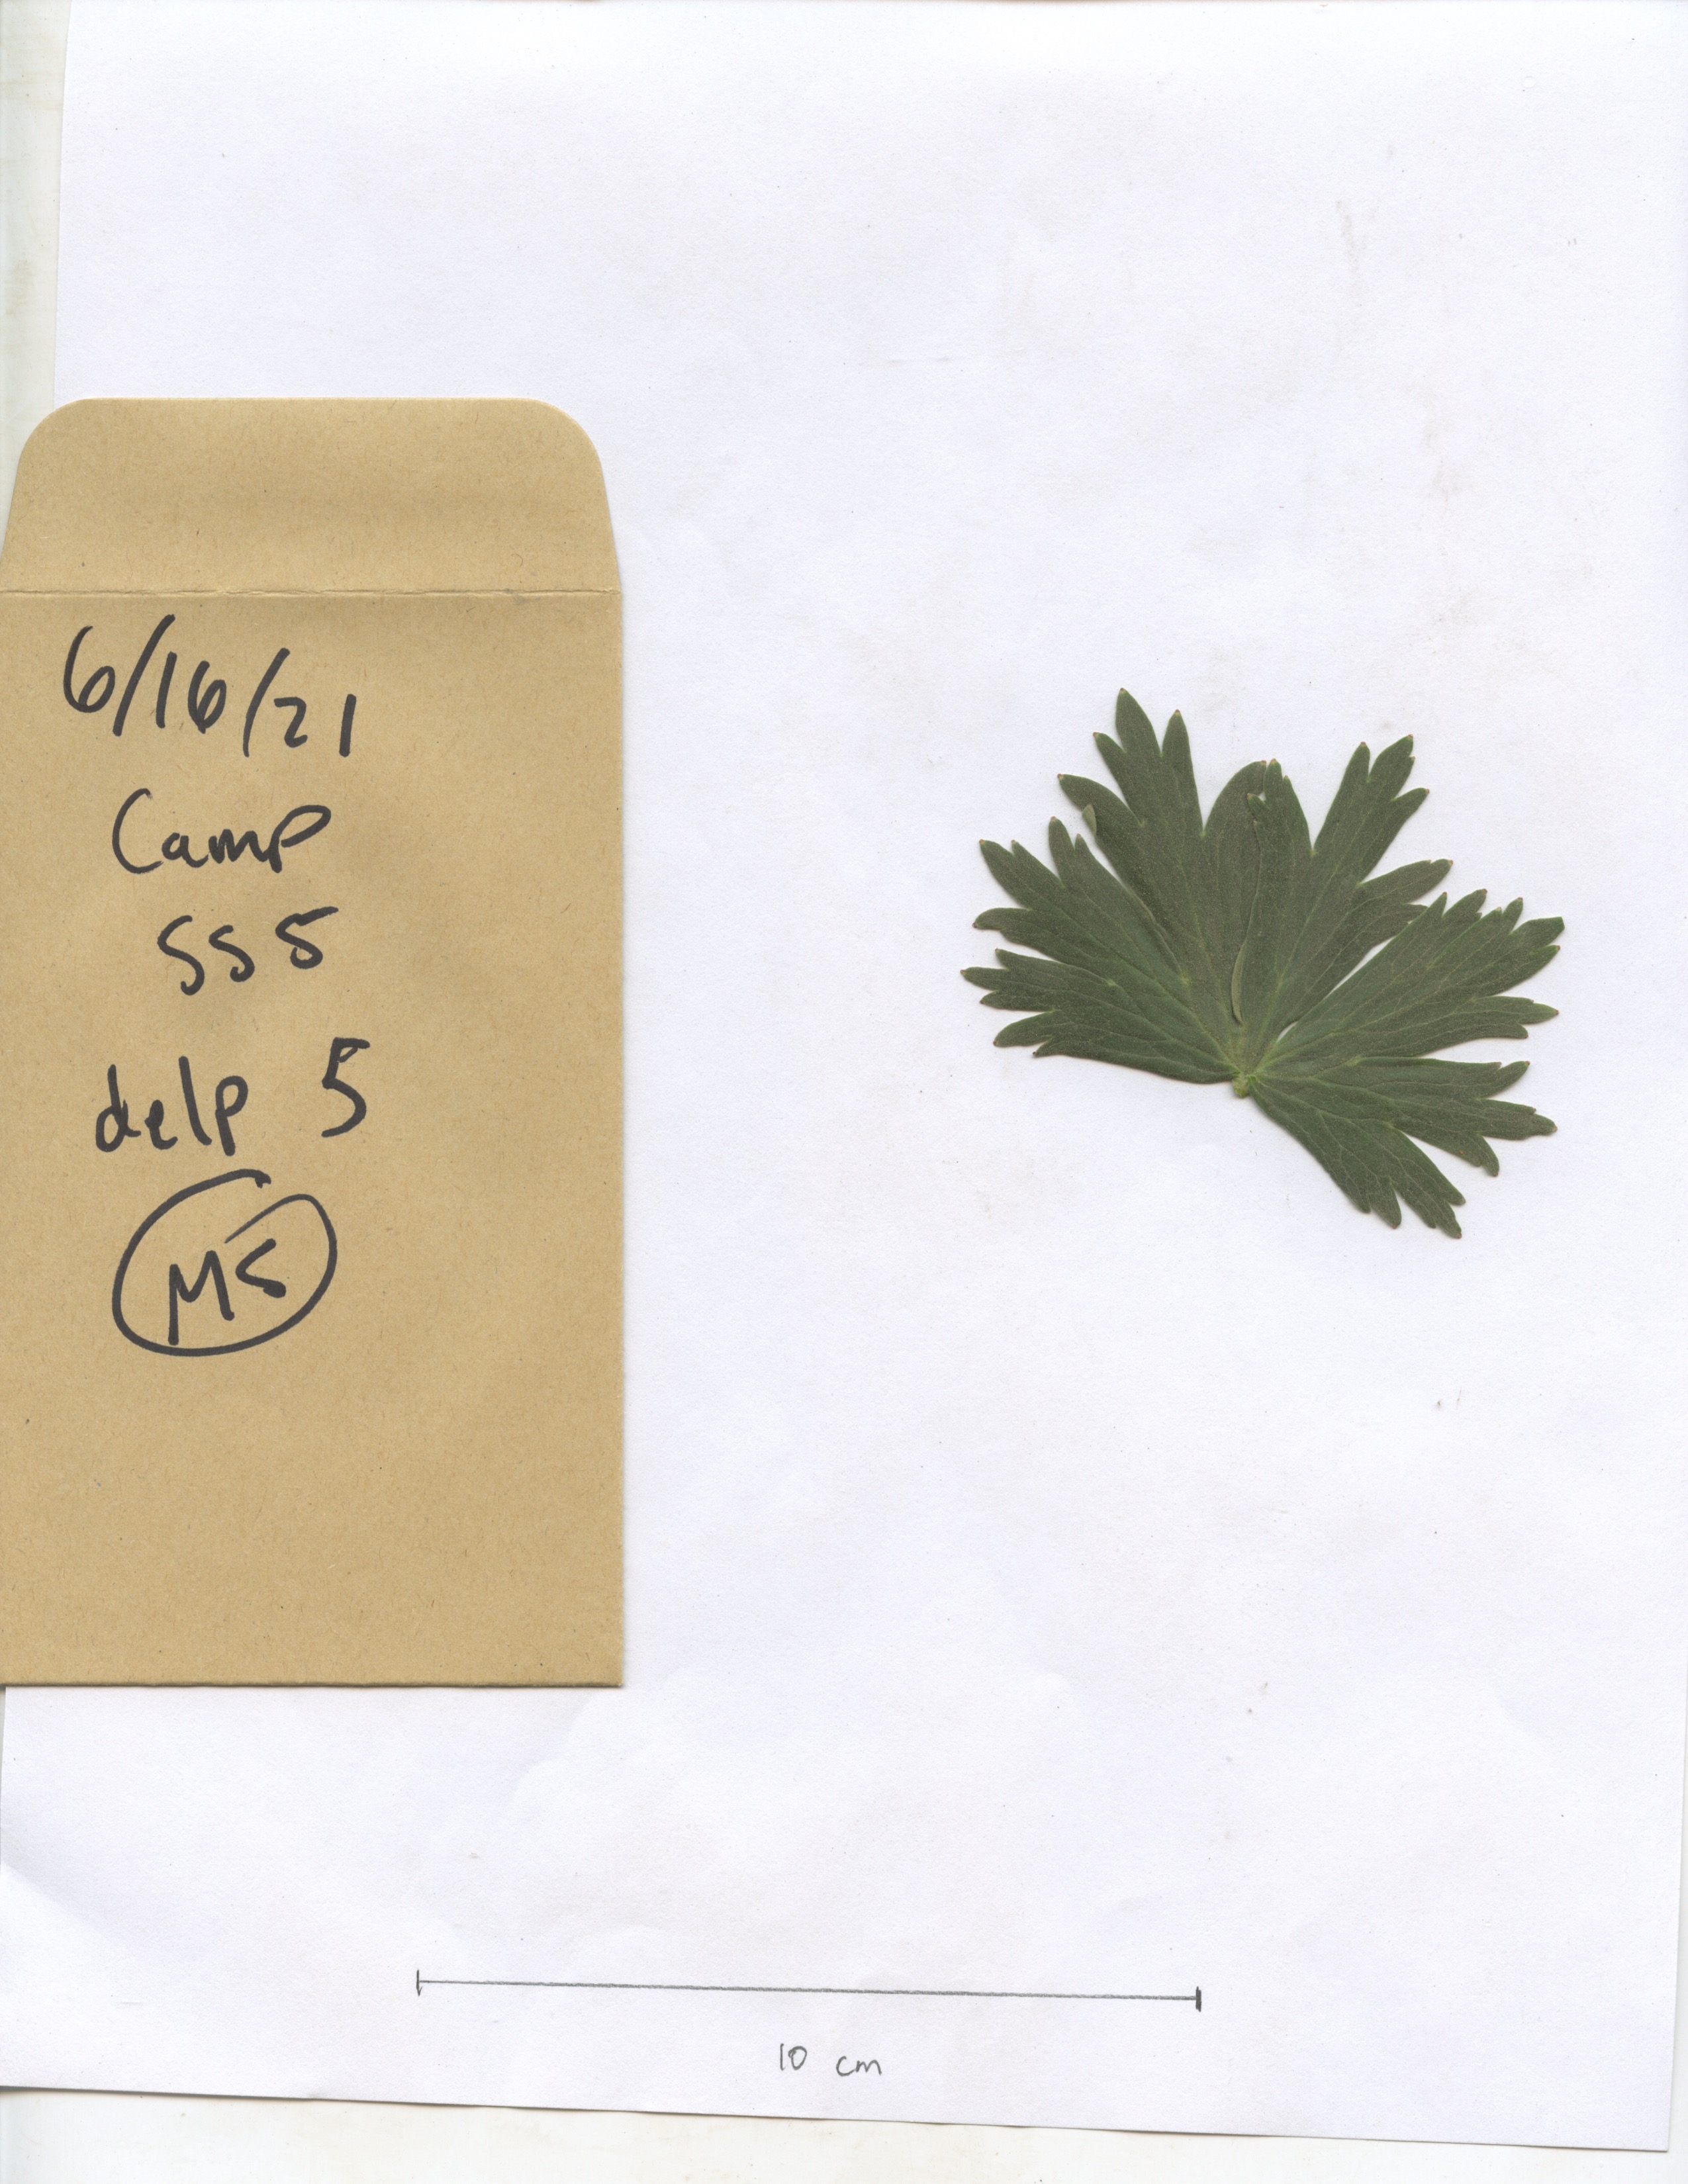 6/16/21
Camp
SS 5
delp 5
MS
10 cm